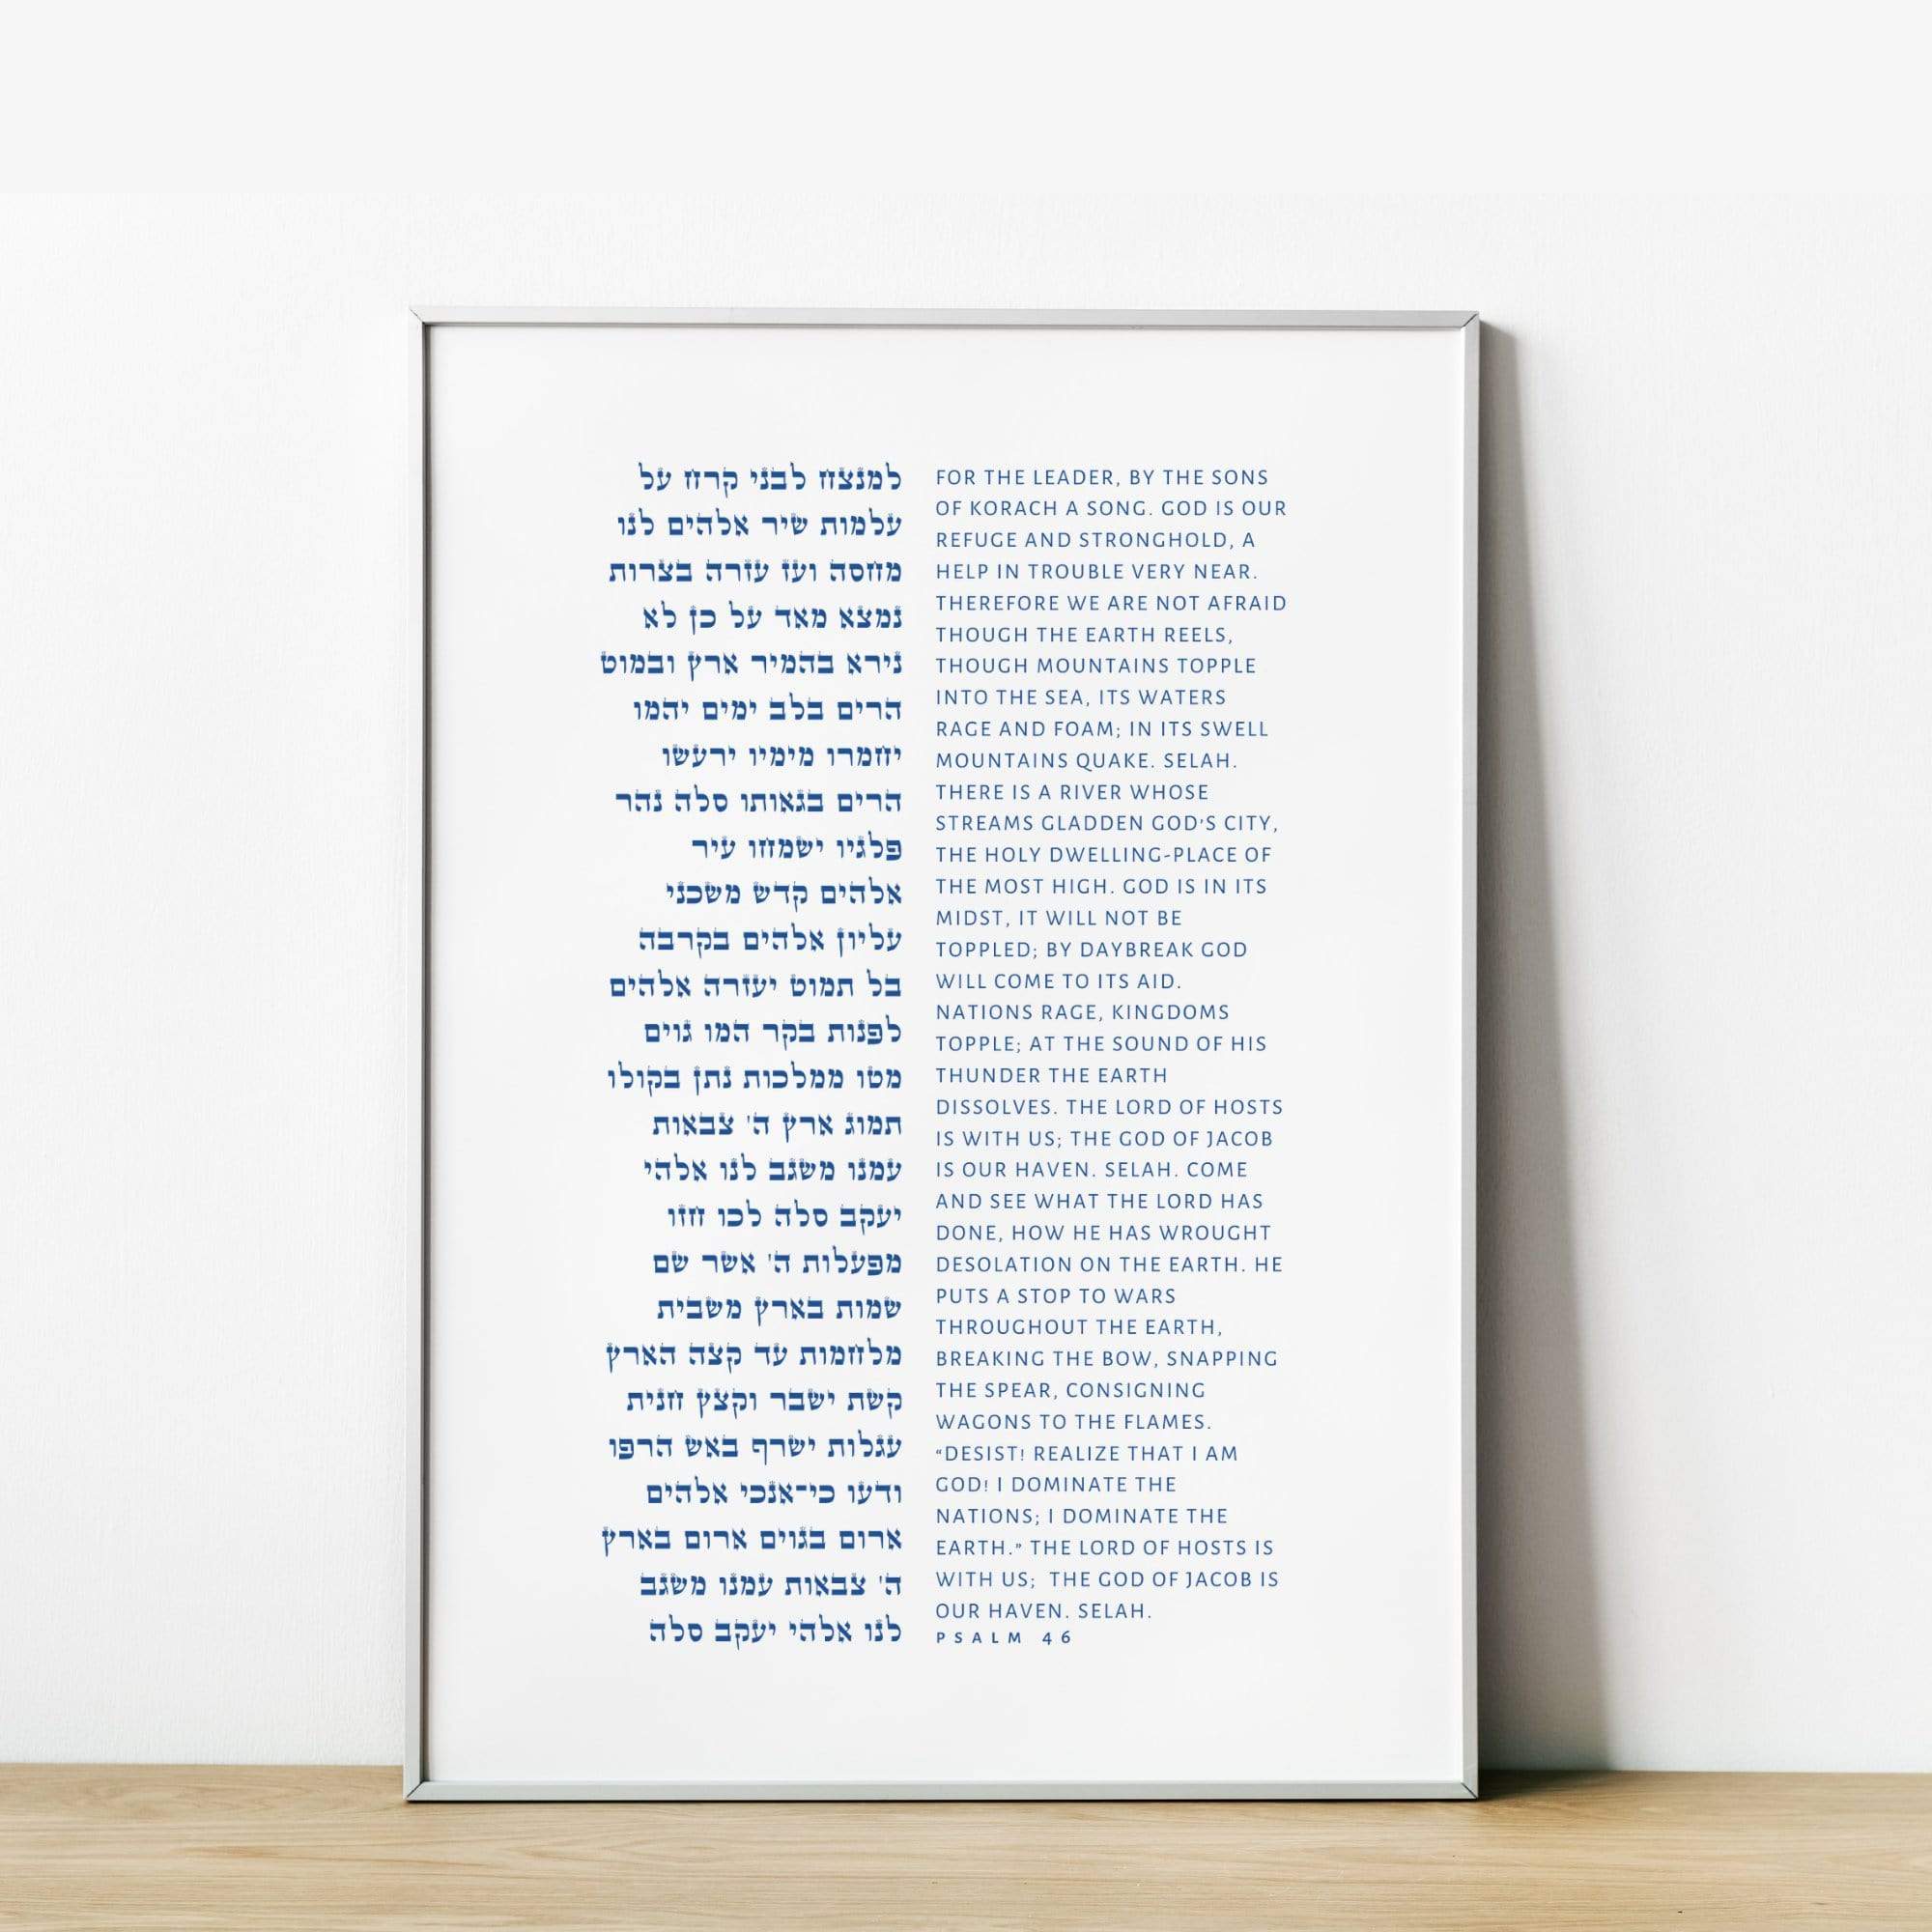 למנצח לבני קרח על
עלמות שיר אלהים לנו
מחסה ועז עזרה בצרות
נמצא מאד על כן לא
נירא בהמיר ארץ ובמוט
הרים בלב ימים יהמו
יחמרו מימיו ירעשו
הרים בגאותו סלה נהר
פלגיו ישמחו עיר
אלהים קדש משכני
עליון אלהים בקרבה
בל תמוט יעזרה אלהים
לפנות בקר המו גוים
מטו ממלכות נתן בקולו
תמוג ארץ ה' צבאות
עמנו משגב לנו אלהי
יעקב סלה לכו חזו
מפעלות ה' אשר שם
שמות בארץ משבית
מלחמות עד קצה הארץ
קשת ישבר וקצץ חנית
עגלות ישרף באש הרפו
ודעו כי־אנכי אלהים
ארום בגוים ארום בארץ
ה' צבאות עמנו משגב
לנו אלהי יעקב סלה
FOR THE LEADER, BY THE SONS
OF KORACH A SONG. GOD IS OUR
REFUGE AND STRONGHOLD, A
HELP IN TROUBLE VERY NEAR.
THEREFORE WE ARE NOT AFRAID
THOUGH THE EARTH REELS,
THOUGH MOUNTAINS TOPPLE
INTO THE SEA, ITS WATERS
RAGE AND FOAM; IN ITS SWELL
MOUNTAINS QUAKE. SELAH.
THERE IS A RIVER WHOSE
STREAMS GLADDEN GOD'S CITY,
THE HOLY DWELLING-PLACE OF
THE MOST HIGH. GOD IS IN ITS
MIDST, IT WILL NOT BE
TOPPLED; BY DAYBREAK GOD
WILL COME TO ITS AID.
NATIONS RAGE, KINGDOMS
TOPPLE; AT THE SOUND OF HIS
THUNDER THE EARTH
DISSOLVES. THE LORD OF HOSTS
IS WITH US; THE GOD OF JACOB
IS OUR HAVEN. SELAH. COME
AND SEE WHAT THE LORD HAS
DONE, HOW HE HAS WROUGHT
DESOLATION ON THE EARTH. HE
PUTS A STOP TO WARS
THROUGHOUT THE EARTH,
BREAKING THE BOW, SNAPPING
THE SPEAR, CONSIGNING
WAGONS TO THE FLAMES.
“DESIST! REALIZE THAT I AM
GOD! I DOMINATE THE
NATIONS; I DOMINATE THE
EARTH.” THE LORD OF HOSTS IS
WITH US; THE GOD OF JACOB IS
OUR HAVEN. SELAH.
PSALM 46